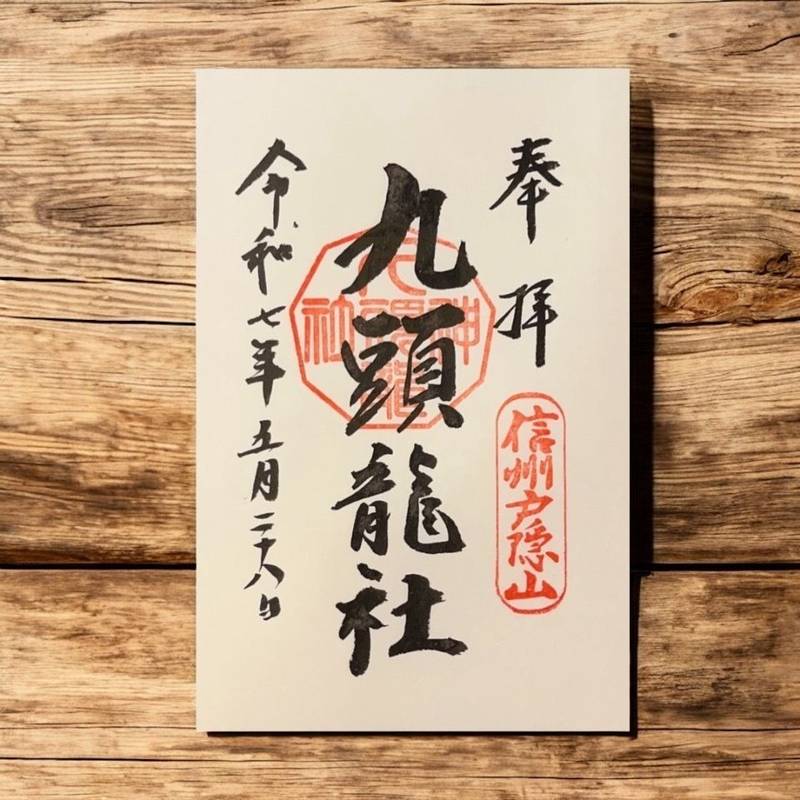 奉拝
信州戸隠山
九頭龍社
令和七年五月二十八日